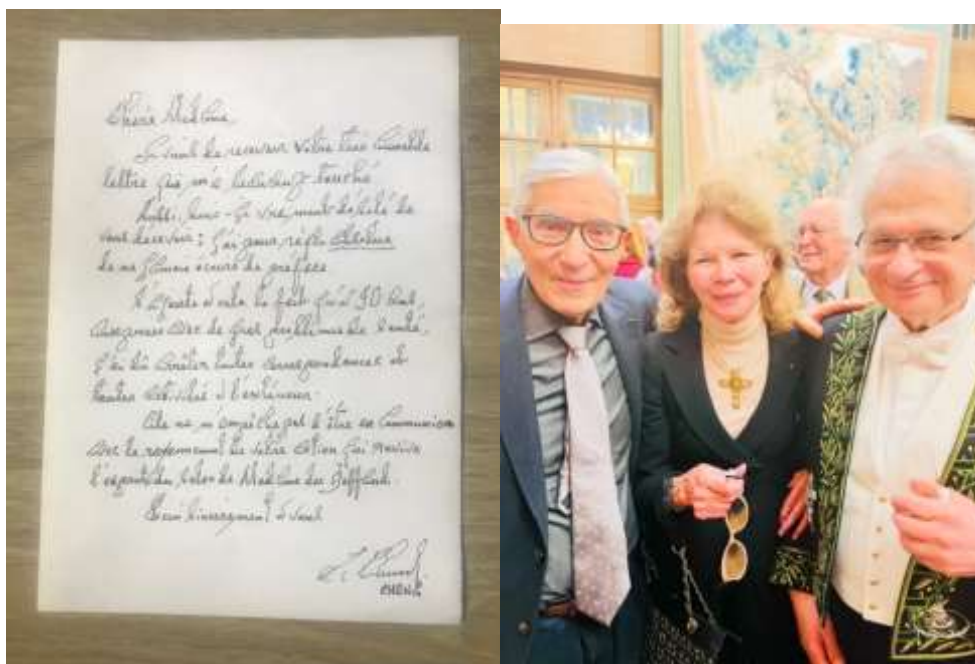 Chère Madame,
Je viens de recevoir votre très aimable
lettre qui m'a touché
Aussi, suis-je vraiment désolé de
vous décevoir : j'ai pour règle absolue
de ne plus écrire de préface
S'ajoute à cela le fait qu'à 90 ans,
avec de gros problèmes de santé,
j'ai dû arrêter toutes correspondances et
toutes activités à l'extérieur.
Cela ne m'empêche pas d'être en communion
avec le rayonnement de votre action qui ravive
l'esprit du salon de Madame du Deffand.
Bien sincèrement à vous
CHENG